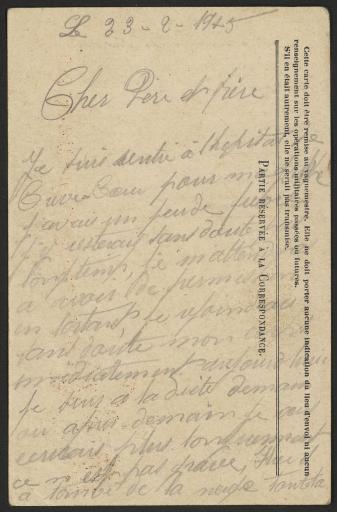 Le 23-2-1915
Cher Père et frère
Je suis rentré à l'hopital
pour
j'avais un peu de
sans doute
longtemps, je
à avoir de permission
en sortant, je rejoindrai
sans doute mon
immédiatement aujourd'hui
Je suis à la diète demain
ou après-demain je vous
écrirai plus longuement
ce n'est pas grave,
à tombé de la neige
PARTIE RÉSERVÉE A LA CORRESPONDANCE.
Cette carte doit être remise au vaguemestre. Elle ne doit porter aucune indication du lieu d'envoi ni aucun
renseignement sur les opérations militaires passées ou futures.
S'il en était autrement, elle ne serait pas transmise.